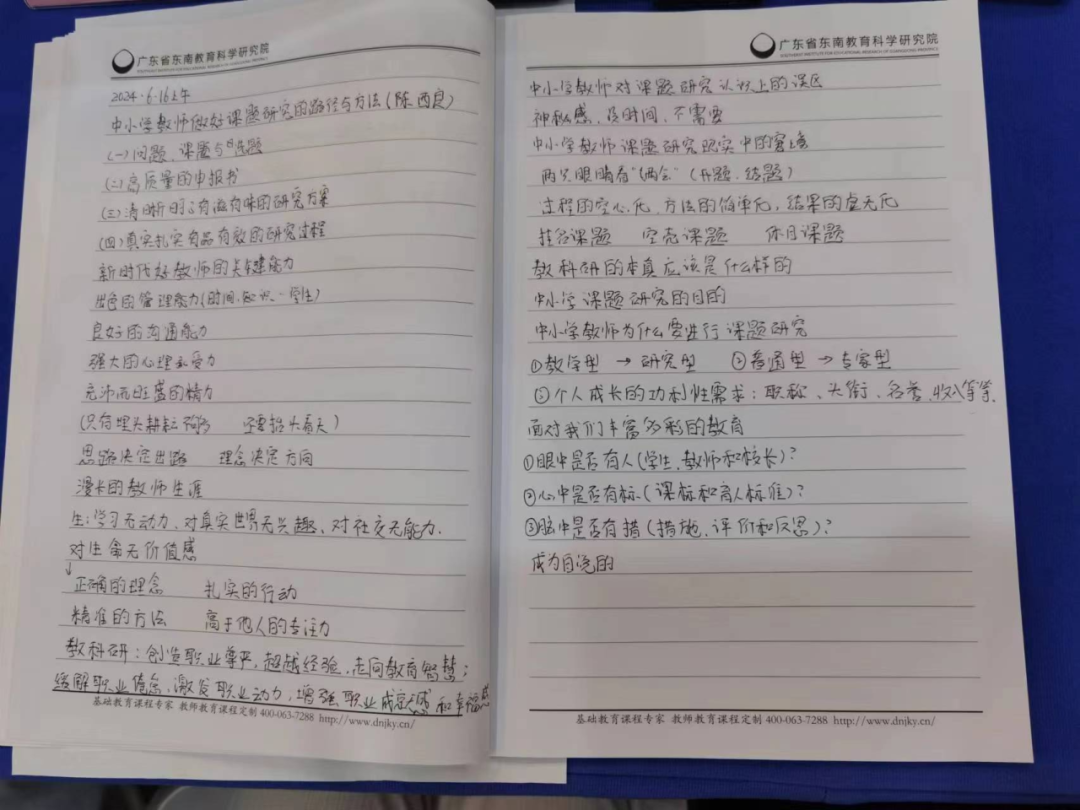 广东省东南教育科学研究院
2024.6.16上午
中小学教师做好课题研究的路径与方法(陈西良)
(一)问题、课题与选题
(二)高质量的申报书
(三)清晰明了有滋有味的研究方案
(四)真实扎实有品有效的研究过程
新时代好教师的关键能力
出色的管理能力(时间、知识、学生)
良好的沟通能力
强大的心理承受力
充沛而旺盛的精力
(只有埋头耕耘 还要抬头看天)
思路决定出路 理念决定方向
漫长的教师生涯
生:学习无动力、对真实世界无兴趣、对社交无能力.
对生命无价值感
↓正确的理念 扎实的行动
精准的方法 高于他人的专注力
教科研:创造职业尊严,超越经验,走向教育智慧;
缓解职业倦怠,激发职业动力,增强职业成就感和幸福感
基础教育课程专家 教师教育课程定制 400-063-7288 http://www.dnjky.cn/
广东省东南教育科学研究院
中小学教师对课题研究认识上的误区
神秘感、没时间、不需要
中小学教师课题研究现实中的窘境
两只眼睛看"两会"(开题、结题)
过程的空心化、方法的简单化,结果的虚无化
挂名课题 空壳课题 休目课题
教科研的本真应该是什么样的
中小学课题研究的目的
中小学教师为什么要进行课题研究
①教学型 → 研究型 ②普通型 → 专家型
③个人成长的功利性需求:职称、头衔、名誉、收入等等
面对我们丰富多彩的教育
①眼中是否有人(学生、教师和校长)?
②心中是否有标(课标和育人标准)?
③脑中是否有措(措施、评价和反思)?
成为自觉的
基础教育课程专家 教师教育课程定制 400-063-7288 http://www.dnjky.cn/